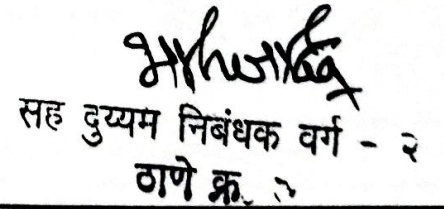 सह दुय्यम निबंधक वर्ग - २
ठाणे क्र.